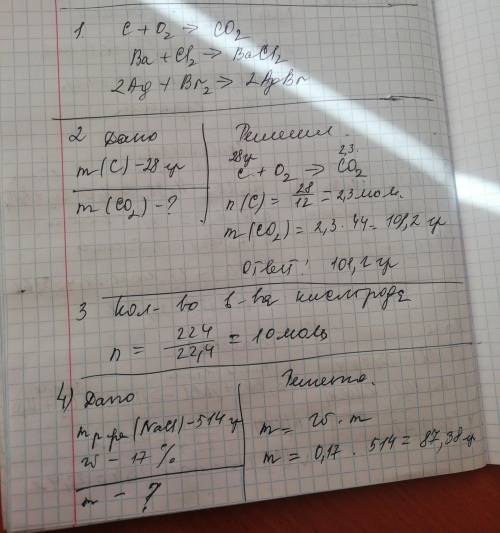 1. C + O₂ → CO₂
Ba + Cl₂ → BaCl₂
2Ag + Br₂ → 2AgBr
2 Дано
m(C) - 28 гр
m(CO₂) - ?
Решение.
28гр 2,3.
C + O₂ → CO₂
n(C) = 28/12 = 2,3 мол.
m(CO₂) = 2,3 · 44 = 101,2 гр
Ответ: 101,2 гр
3 Кол-во в-ва кислорода
n = 224/22,4 = 10 моль
4) Дано
m р-ра (NaCl) - 514 гр
w - 17 %
m - ?
Решение.
m = w · m
m = 0,17 · 514 = 87,38 гр